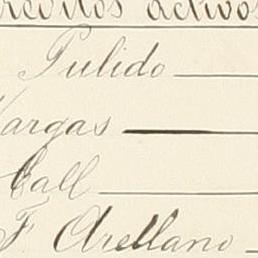 creditos activos
Pulido
Vargas
Call
F Arellano